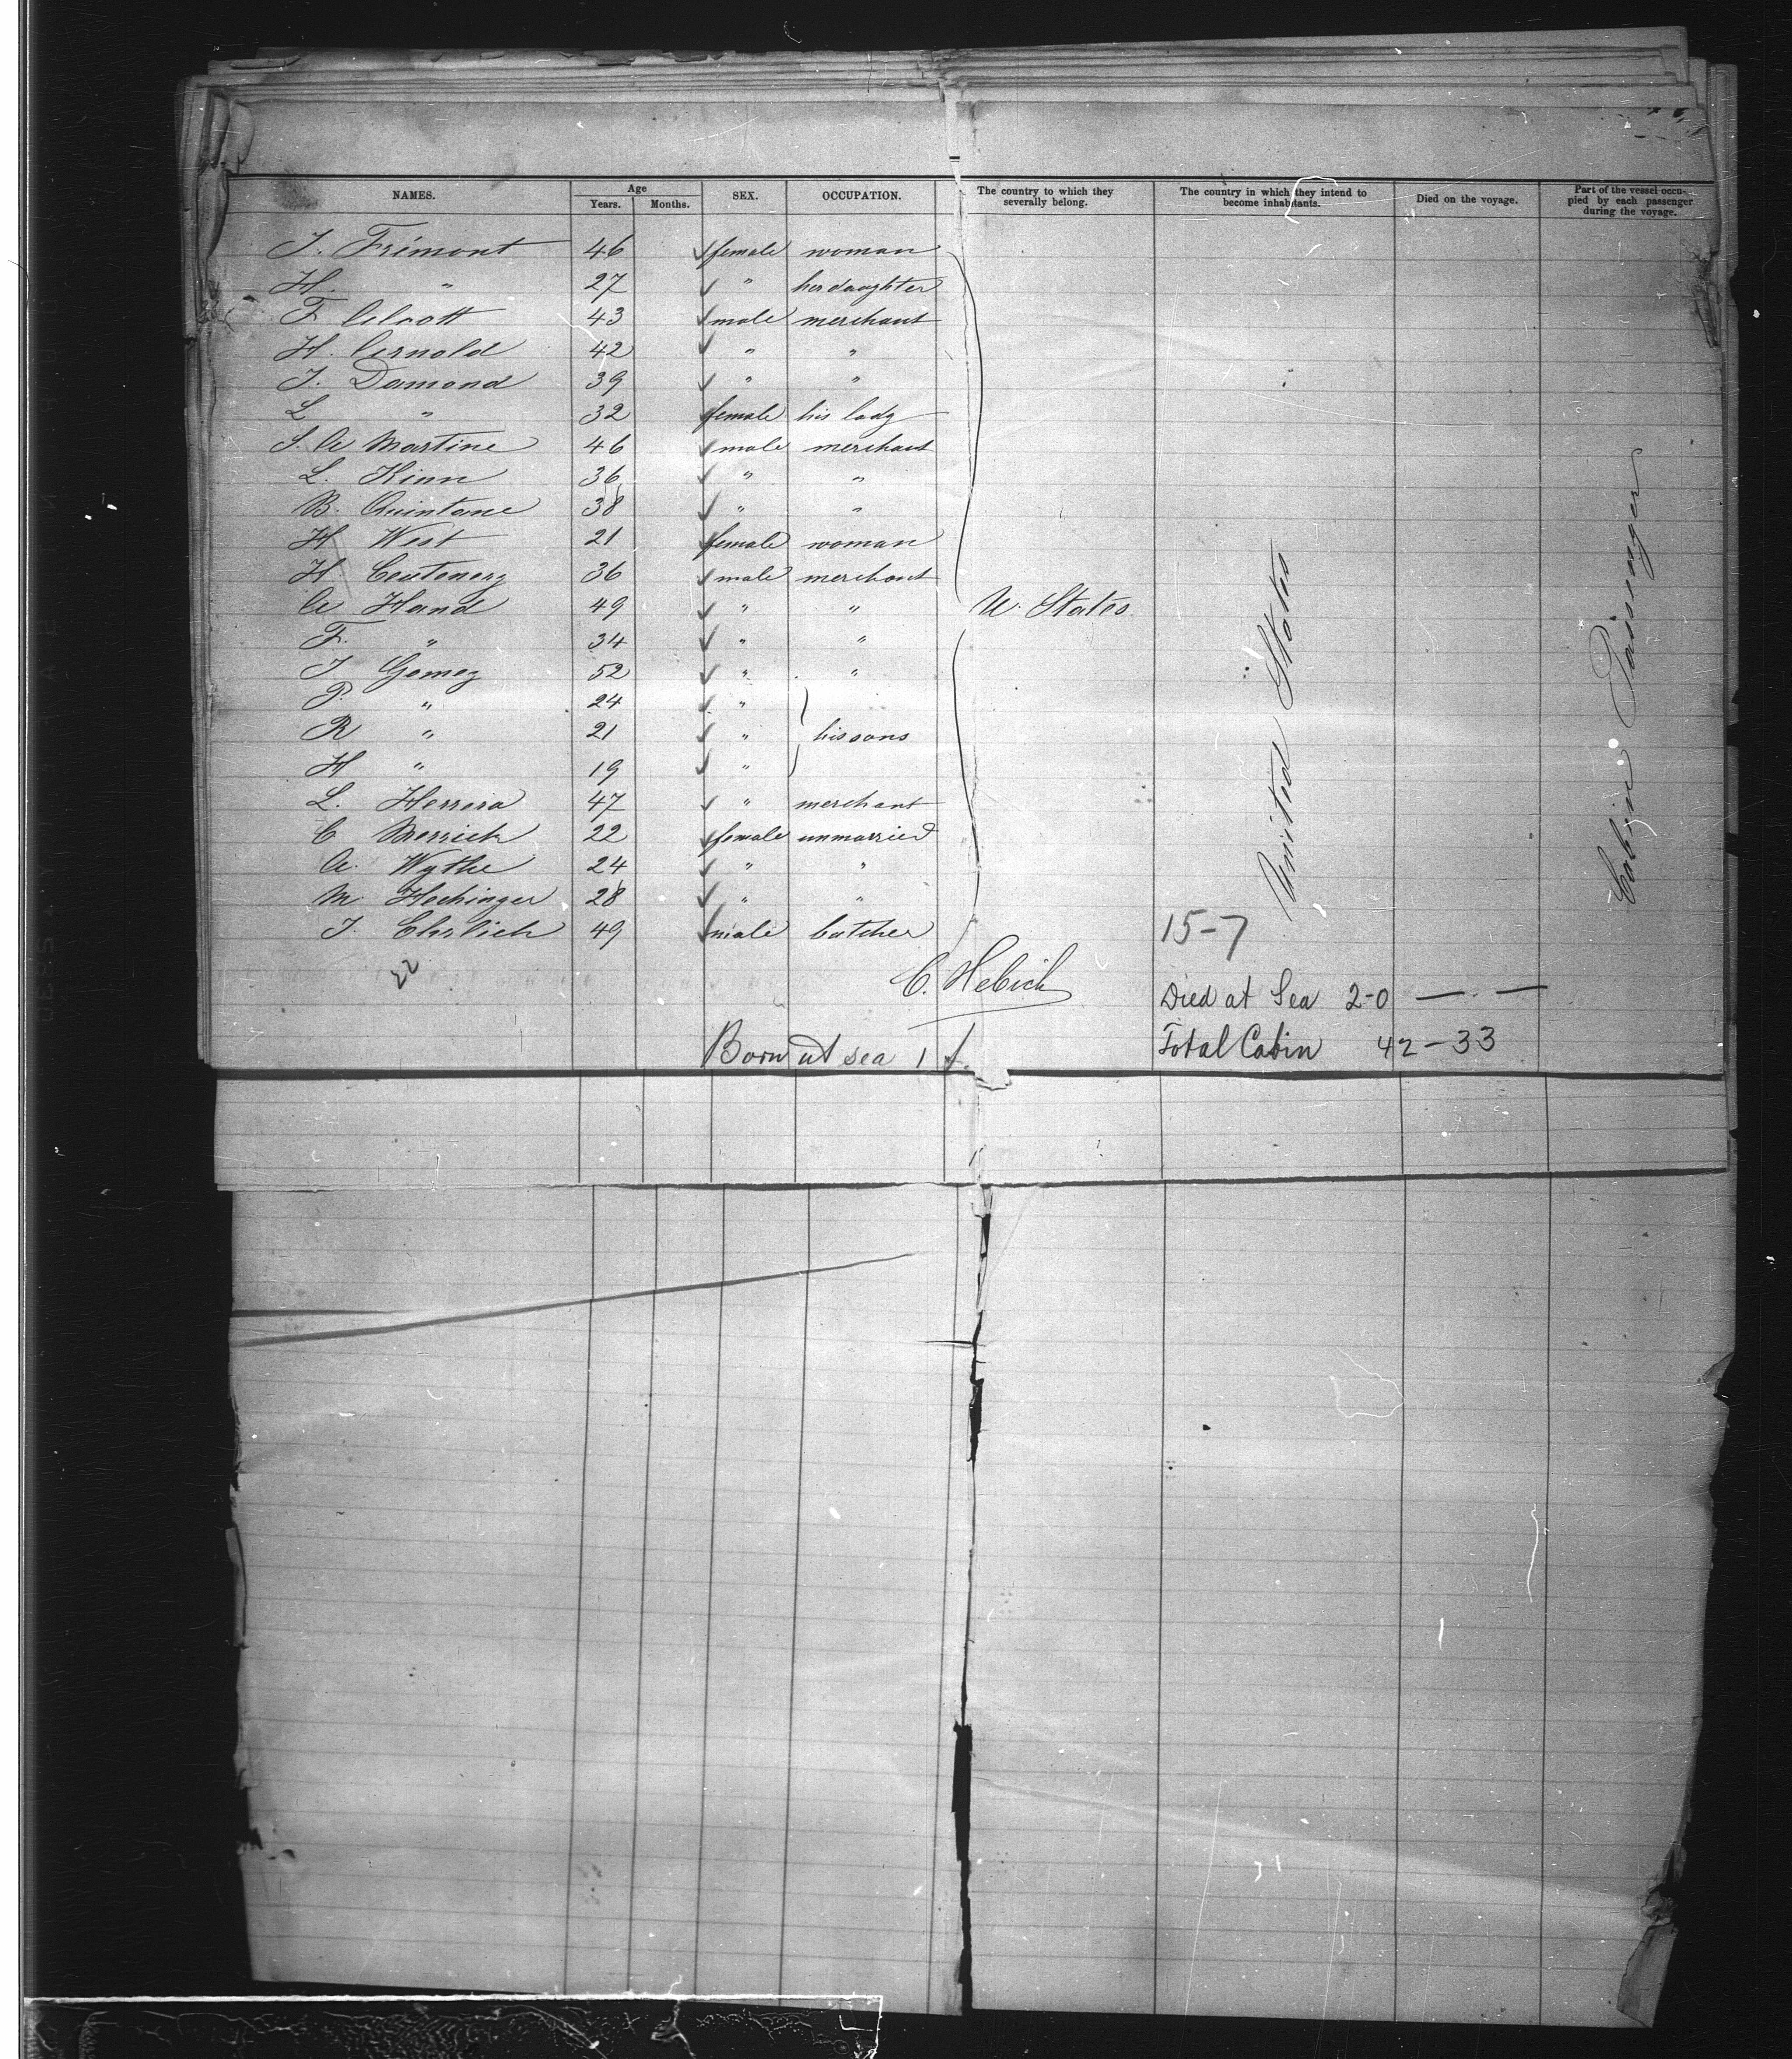 NAMES. Age Years. Months. SEX. OCCUPATION. The country to which they severally belong. The country in which they intend to become inhabitants. Died on the voyage. Part of the vessel occupied by each passenger during the voyage.
J. Frémont 46 female woman
H. " 27 " her daughter
F. Alcott 43 male merchant
H. Arnold 42 " "
J. Damond 39 " "
L " 32 female his lady
S. A Martine 46 male merchant
L. Kinn 36 " "
B. Quintane 38 " "
H West 21 female woman
H Centenerz 36 male merchant
A Hand 49 " " U. States
F. " 34 " "
J Gomez 52 " "
P. " 24 "
R " 21 " his sons
H " 19 "
L. Herrera 47 " merchant
C Merrick 22 female unmarried
A. Wythe 24 " "
M. Hechinger 28 " "
J. Ehrlich 49 male butcher
United States
Cabin Passenger
15-7
22
C. Hebich
Died at Sea 2-0 — —
Total Cabin 42-33
Born at sea 1 f.